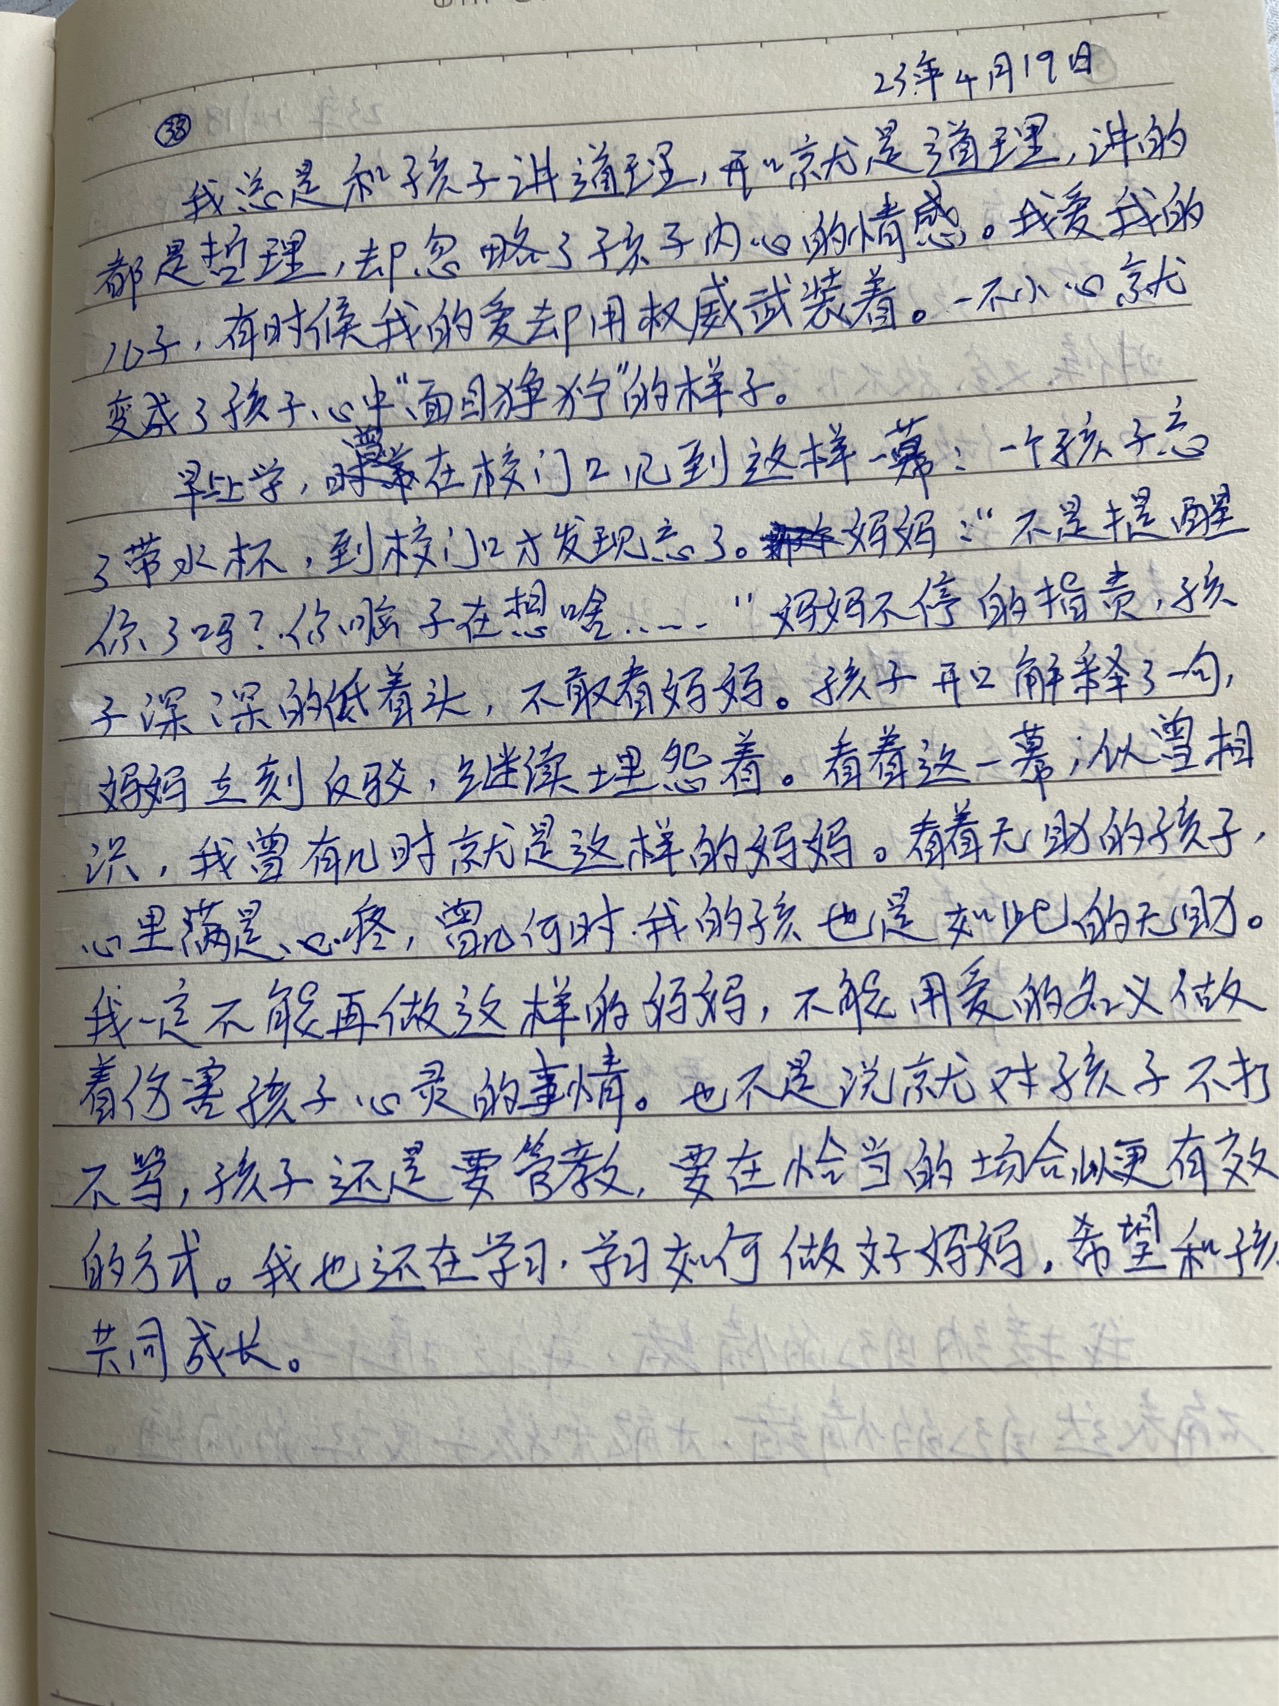 23年4月19日
㊳
我总是和孩子讲道理，开口就是道理，讲的
都是哲理，却忽略了孩子内心的情感。我爱我的
儿子，有时候我的爱却用权威武装着。一不小心就
变成了孩子心中“面目狰狞”的样子。
早上学，曾在校门口见到这样一幕：一个孩子忘
了带水杯，到校门口才发现忘了。妈妈：“不是提醒
你了吗？你脑子在想啥……”妈妈不停的指责，孩
子深深的低着头，不敢看妈妈。孩子开口解释了一句，
妈妈立刻反驳，继续埋怨着。看着这一幕，似曾相
识，我曾有几时就是这样的妈妈。看着无助的孩子，
心里满是心疼，曾几何时我的孩也是如此的无助。
我一定不能再做这样的妈妈，不能用爱的名义做
着伤害孩子心灵的事情。也不是说就对孩子不打
不骂，孩子还是要管教，要在恰当的场合以更有效
的方式。我也还在学习，学习如何做好妈妈，希望和孩
共同成长。